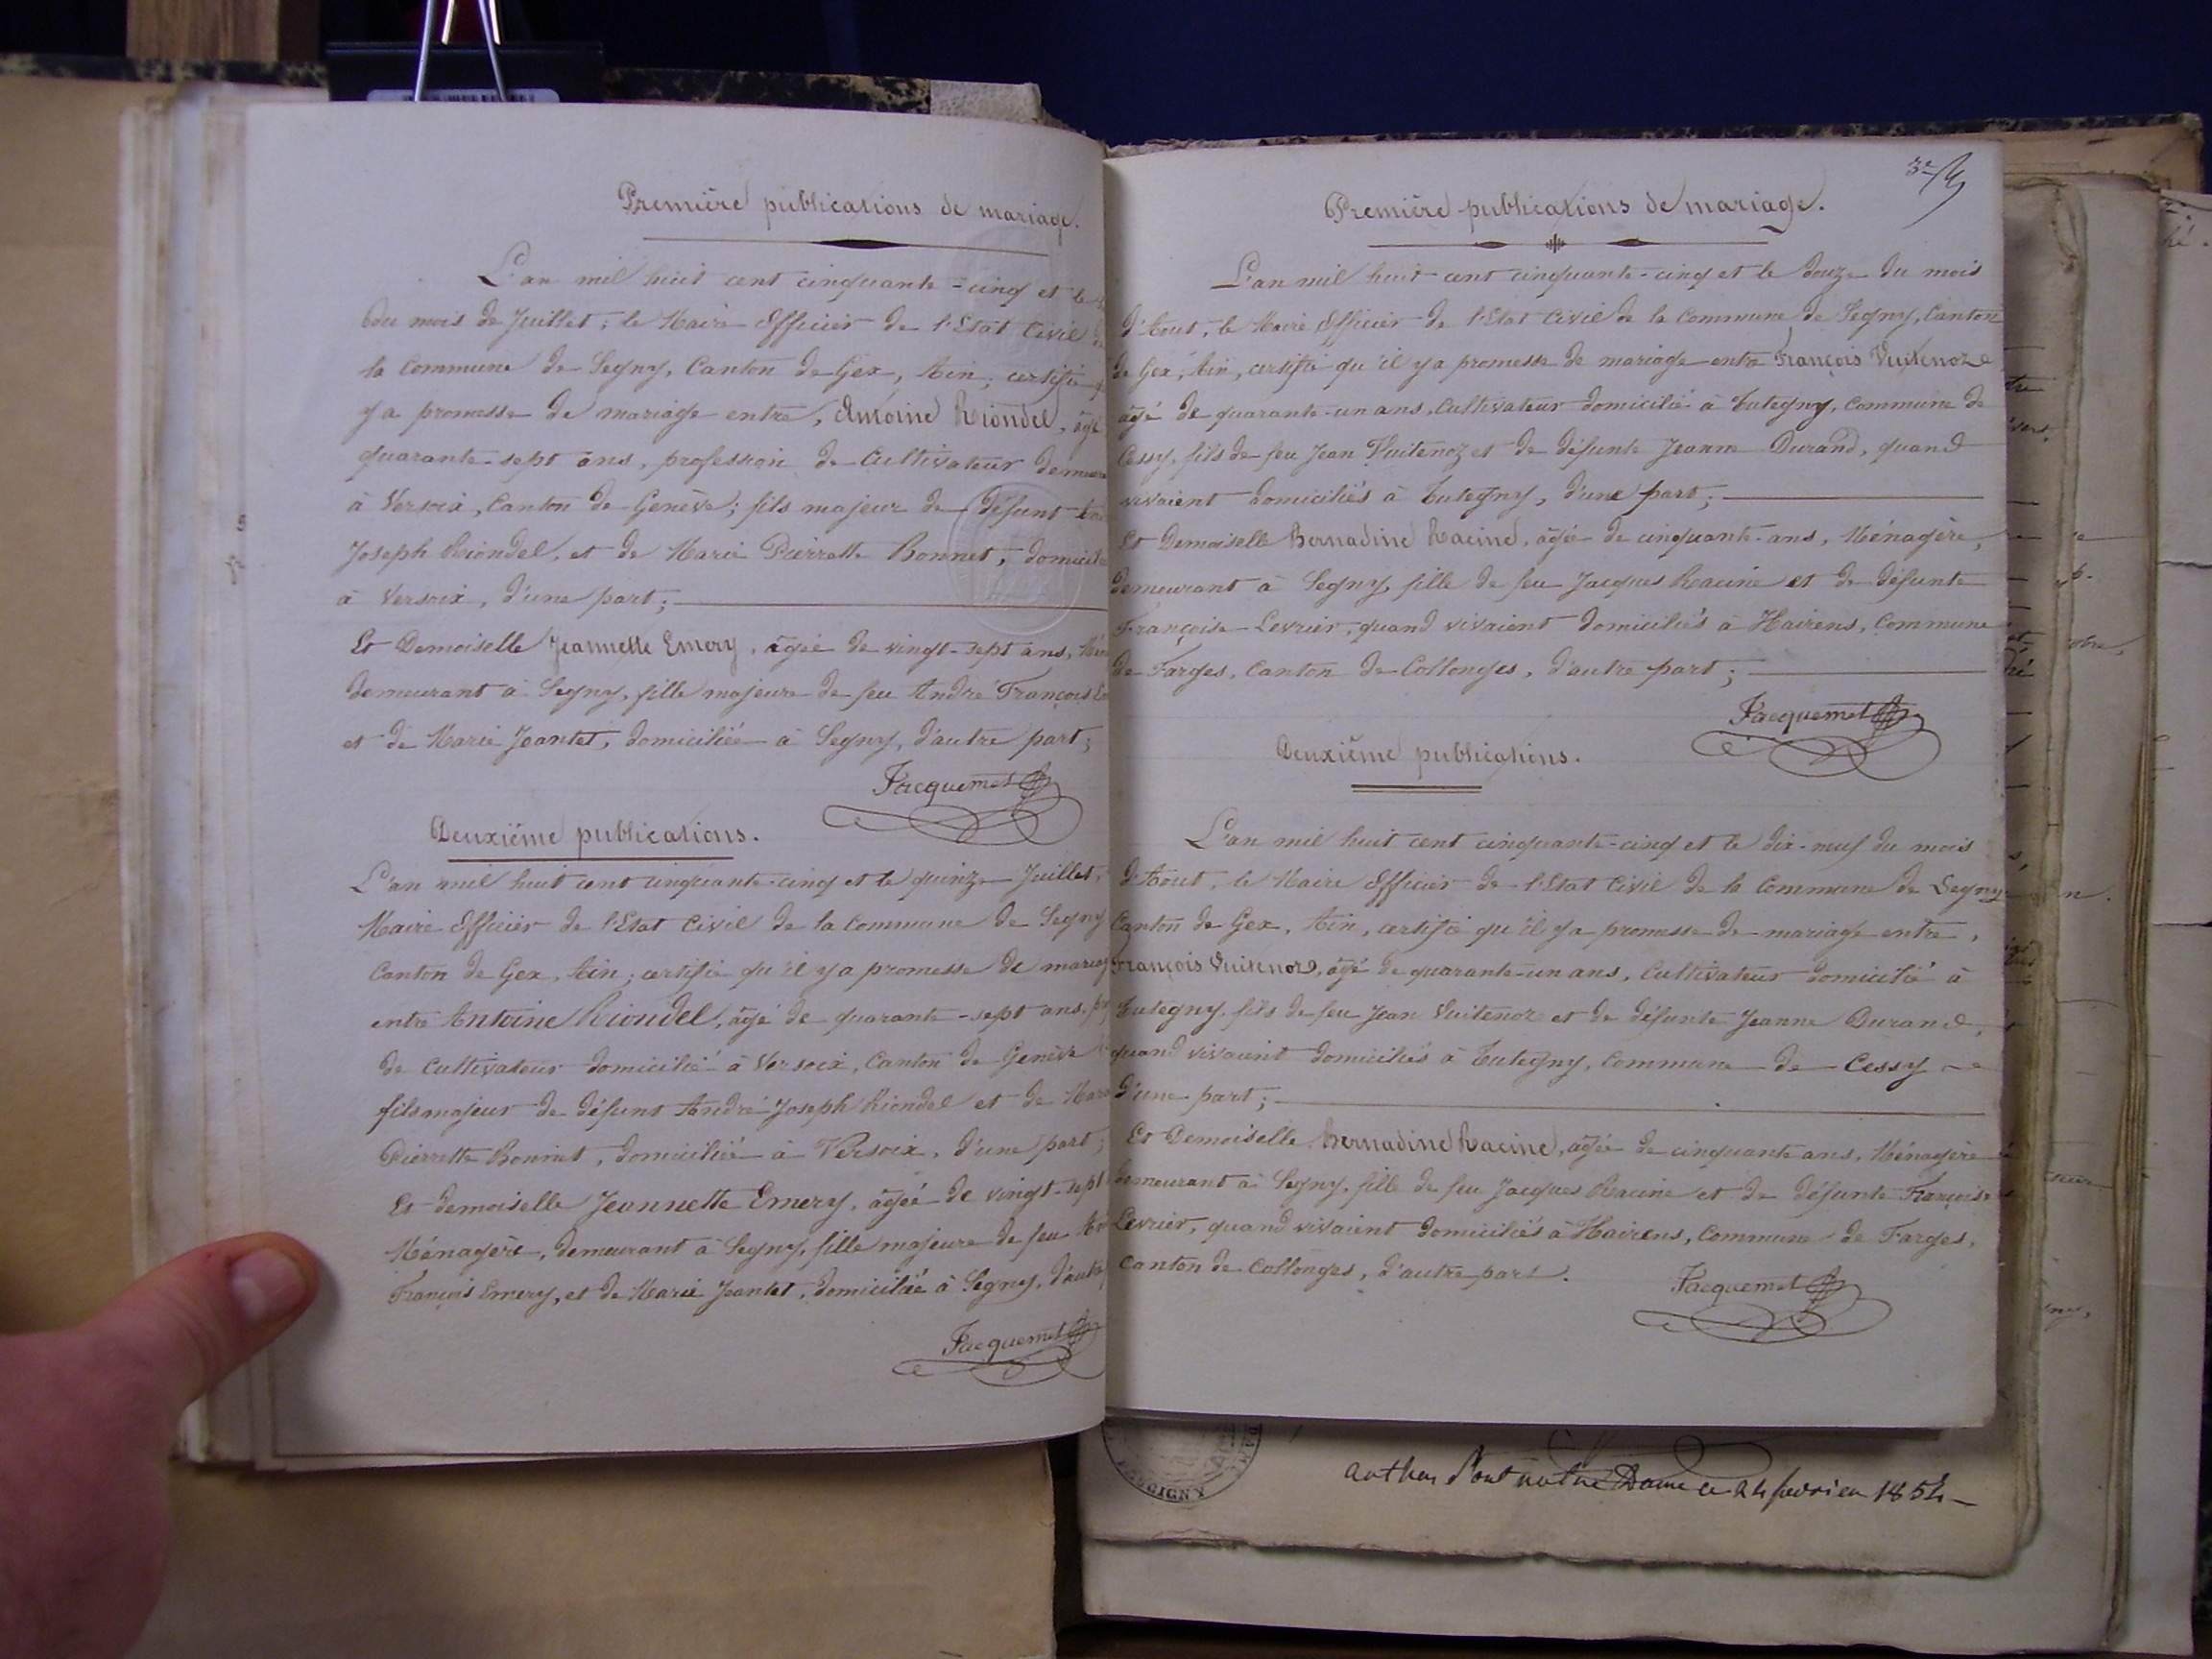 Première publications de mariage.
L'an mil huit cent cinquante-cinq et le
du mois de Juillet, le Maire Officier de l'Etat Civil de
la Commune de Segny, Canton de Gex, Ain, certifie
y a promesse de mariage entre, Antoine Riondel, âgé
quarante-sept ans, profession de Cultivateur demeura
à Versoix, Canton de Genève; fils majeur de défunt
Joseph Riondel, et de Marie Pierrette Bonnet, domicili
à Versoix, d'une part;
Et Demoiselle Jeannette Emery, âgée de vingt-sept ans, Mén
demeurant à Segny, fille majeure de feu André François
et de Marie Jeantet, domiciliée à Segny, d'autre part;
Jacquemet
Deuxiême publications.
L'an mil huit cent cinquante-cinq et le quinze Juillet,
Maire Officier de l'Etat Civil de la Commune de Segny
Canton de Gex, Ain; certifie qu'il y a promesse de mariag
entre Antoine Riondel, âgé de quarante-sept ans, pr
de Cultivateur domicilié à Versoix, Canton de Genève
fils majeur de défunt André Joseph Riondel et de Marie
Pierrette Bonnet, domiciliée à Versoix, d'une part;
Et demoiselle Jeannette Emery, âgée de vingt-sept
Ménagère, demeurant à Segny, fille majeure de feu An
François Emery, et de Marie Jeantet, domiciliée à Segny, d'autre
Jacquemet
3e
Première publications de mariage.
L'an mil huit cent cinquante-cinq et le douze du mois
d'Aout, le Maire Officier de l'Etat Civil de la Commune de Segny, Canton
de Gex, Ain, certifie qu'il y a promesse de mariage entre François Vuitenoz
âgé de quarante-un ans, Cultivateur domicilié à Tutegny, Commune de
Cessy, fils de feu Jean Vuitenoz et de défunte Jeanne Durand, quand
vivaient domiciliés à Tutegny, d'une part;
Et Demoiselle Bernadine Racine, âgée de cinquante-ans, Ménagère,
demeurant à Segny, fille de feu Jacques Racine et de défunte
Françoise Levrier, quand vivaient domiciliés à Hairens, Commune
de Farges, Canton de Collonges, d'autre part;
Jacquemet
Deuxiême publications.
L'an mil huit cent cinquante-cinq et le dix-neuf du mois
d'Aout, le Maire Officier de l'Etat Civil de la Commune de Segny
Canton de Gex, Ain, certifie qu'il y a promesse de mariage entre,
François Vuitenoz, âgé de quarante-un ans, Cultivateur domicilié à
Tutegny, fils de feu Jean Vuitenoz et de défunte Jeanne Durand,
quand vivaient domiciliés à Tutegny, Commune de Cessy
d'une part;
Et Demoiselle Bernadine Racine, âgée de cinquante ans, Ménagère
demeurant à Segny, fille de feu Jacques Racine et de défunte Françoise
Levrier, quand vivaient domiciliés à Hairens, Commune de Farges,
Canton de Collonges, d'autre part.
Jacquemet
notre Dame ce 24 fevrier 1854